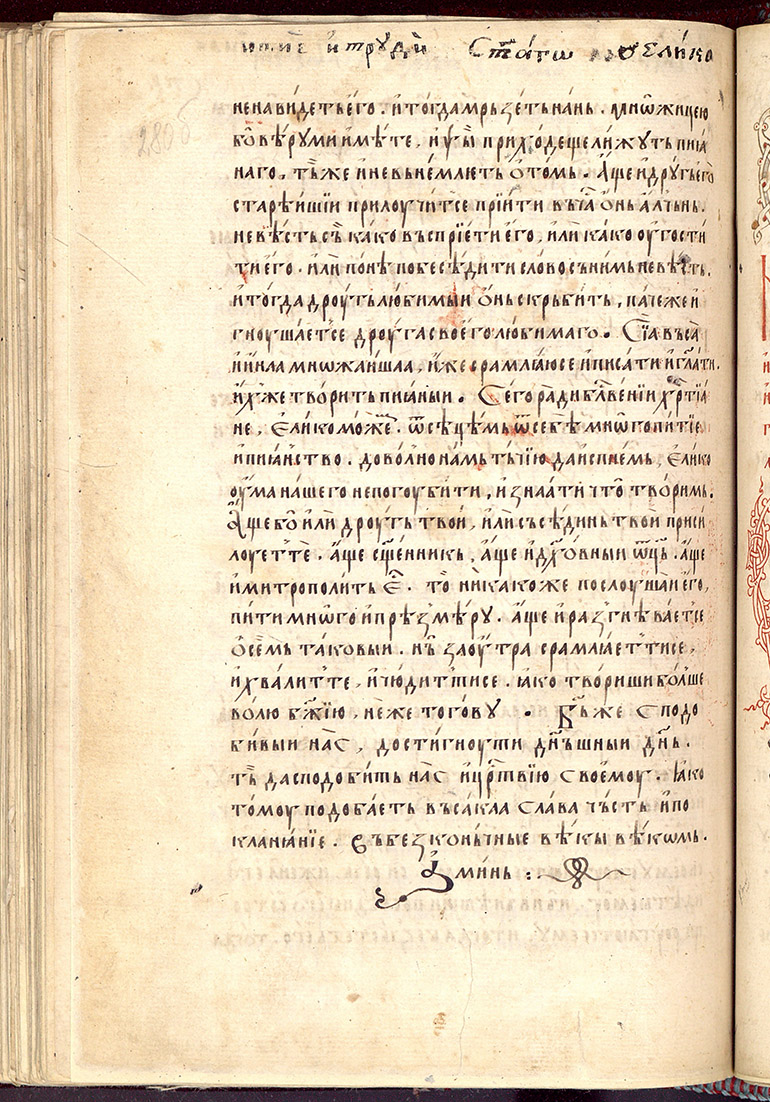 и трꙋди Ст҃аго
ненавидеть его . и тогда мрьзеть нань . мнѡжицею
бо верꙋ ми имѣте , и ѱы приходеще лижꙋть пиꙗ
наго , тъжⷣе и не вьнемлють ѡ томь . Аще и дрꙋгь его
стареишїи прилоучитсе прїити въ ꙗ онь алчьнь .
не вѣсть съ како въспрїети его , или како оугости
ти его . или понѣ побеседити слово съ нимь не вѣсть .
и тогда дроугь любимыи онь скрьбить , паче же и
гноушаетсе дроуга своего любимаго . Сїа въса
и ина мнѡжаишаа , иже срамлꙗюсе и писати и гл҃ати .
ихже творить пиꙗныи . Сего ради блг҃вении хрⷭтїа
не , елико може . ѿсецемь ѿ себѣ мнѡго питїе
и пиꙗнство . доволно намь тъчїю да испїемь , елико
оума нашего не погоубити , и знаати что творимь .
Аще бо или дроугь твои , или съсединь твои приси
лоуетте . аще сщ҃енникь , аще и дх҃овныи ѿц҃ь . аще
и митрополить еⷭ . то никакоже послоушаи его ,
пити мнѡго и презмерꙋ . аще и разгневаетсе
ѡ семь таковыи . нь заоутра срамлꙗеттисе ,
и хвалитте , и чюдиттисе . ꙗко твориши болше
волю бж҃їю , неже тоговꙋ . Бг҃ь же сподо
бивыи нас , достигноути дн҃ьшныи дн҃ь .
тъ да сподобить нас и црⷭтвїю своемоу . ꙗко
томоу подобаеть въсака слава чьсть и по
кланꙗнїе . въ безконьчные векы векѡмь .
Аминь :